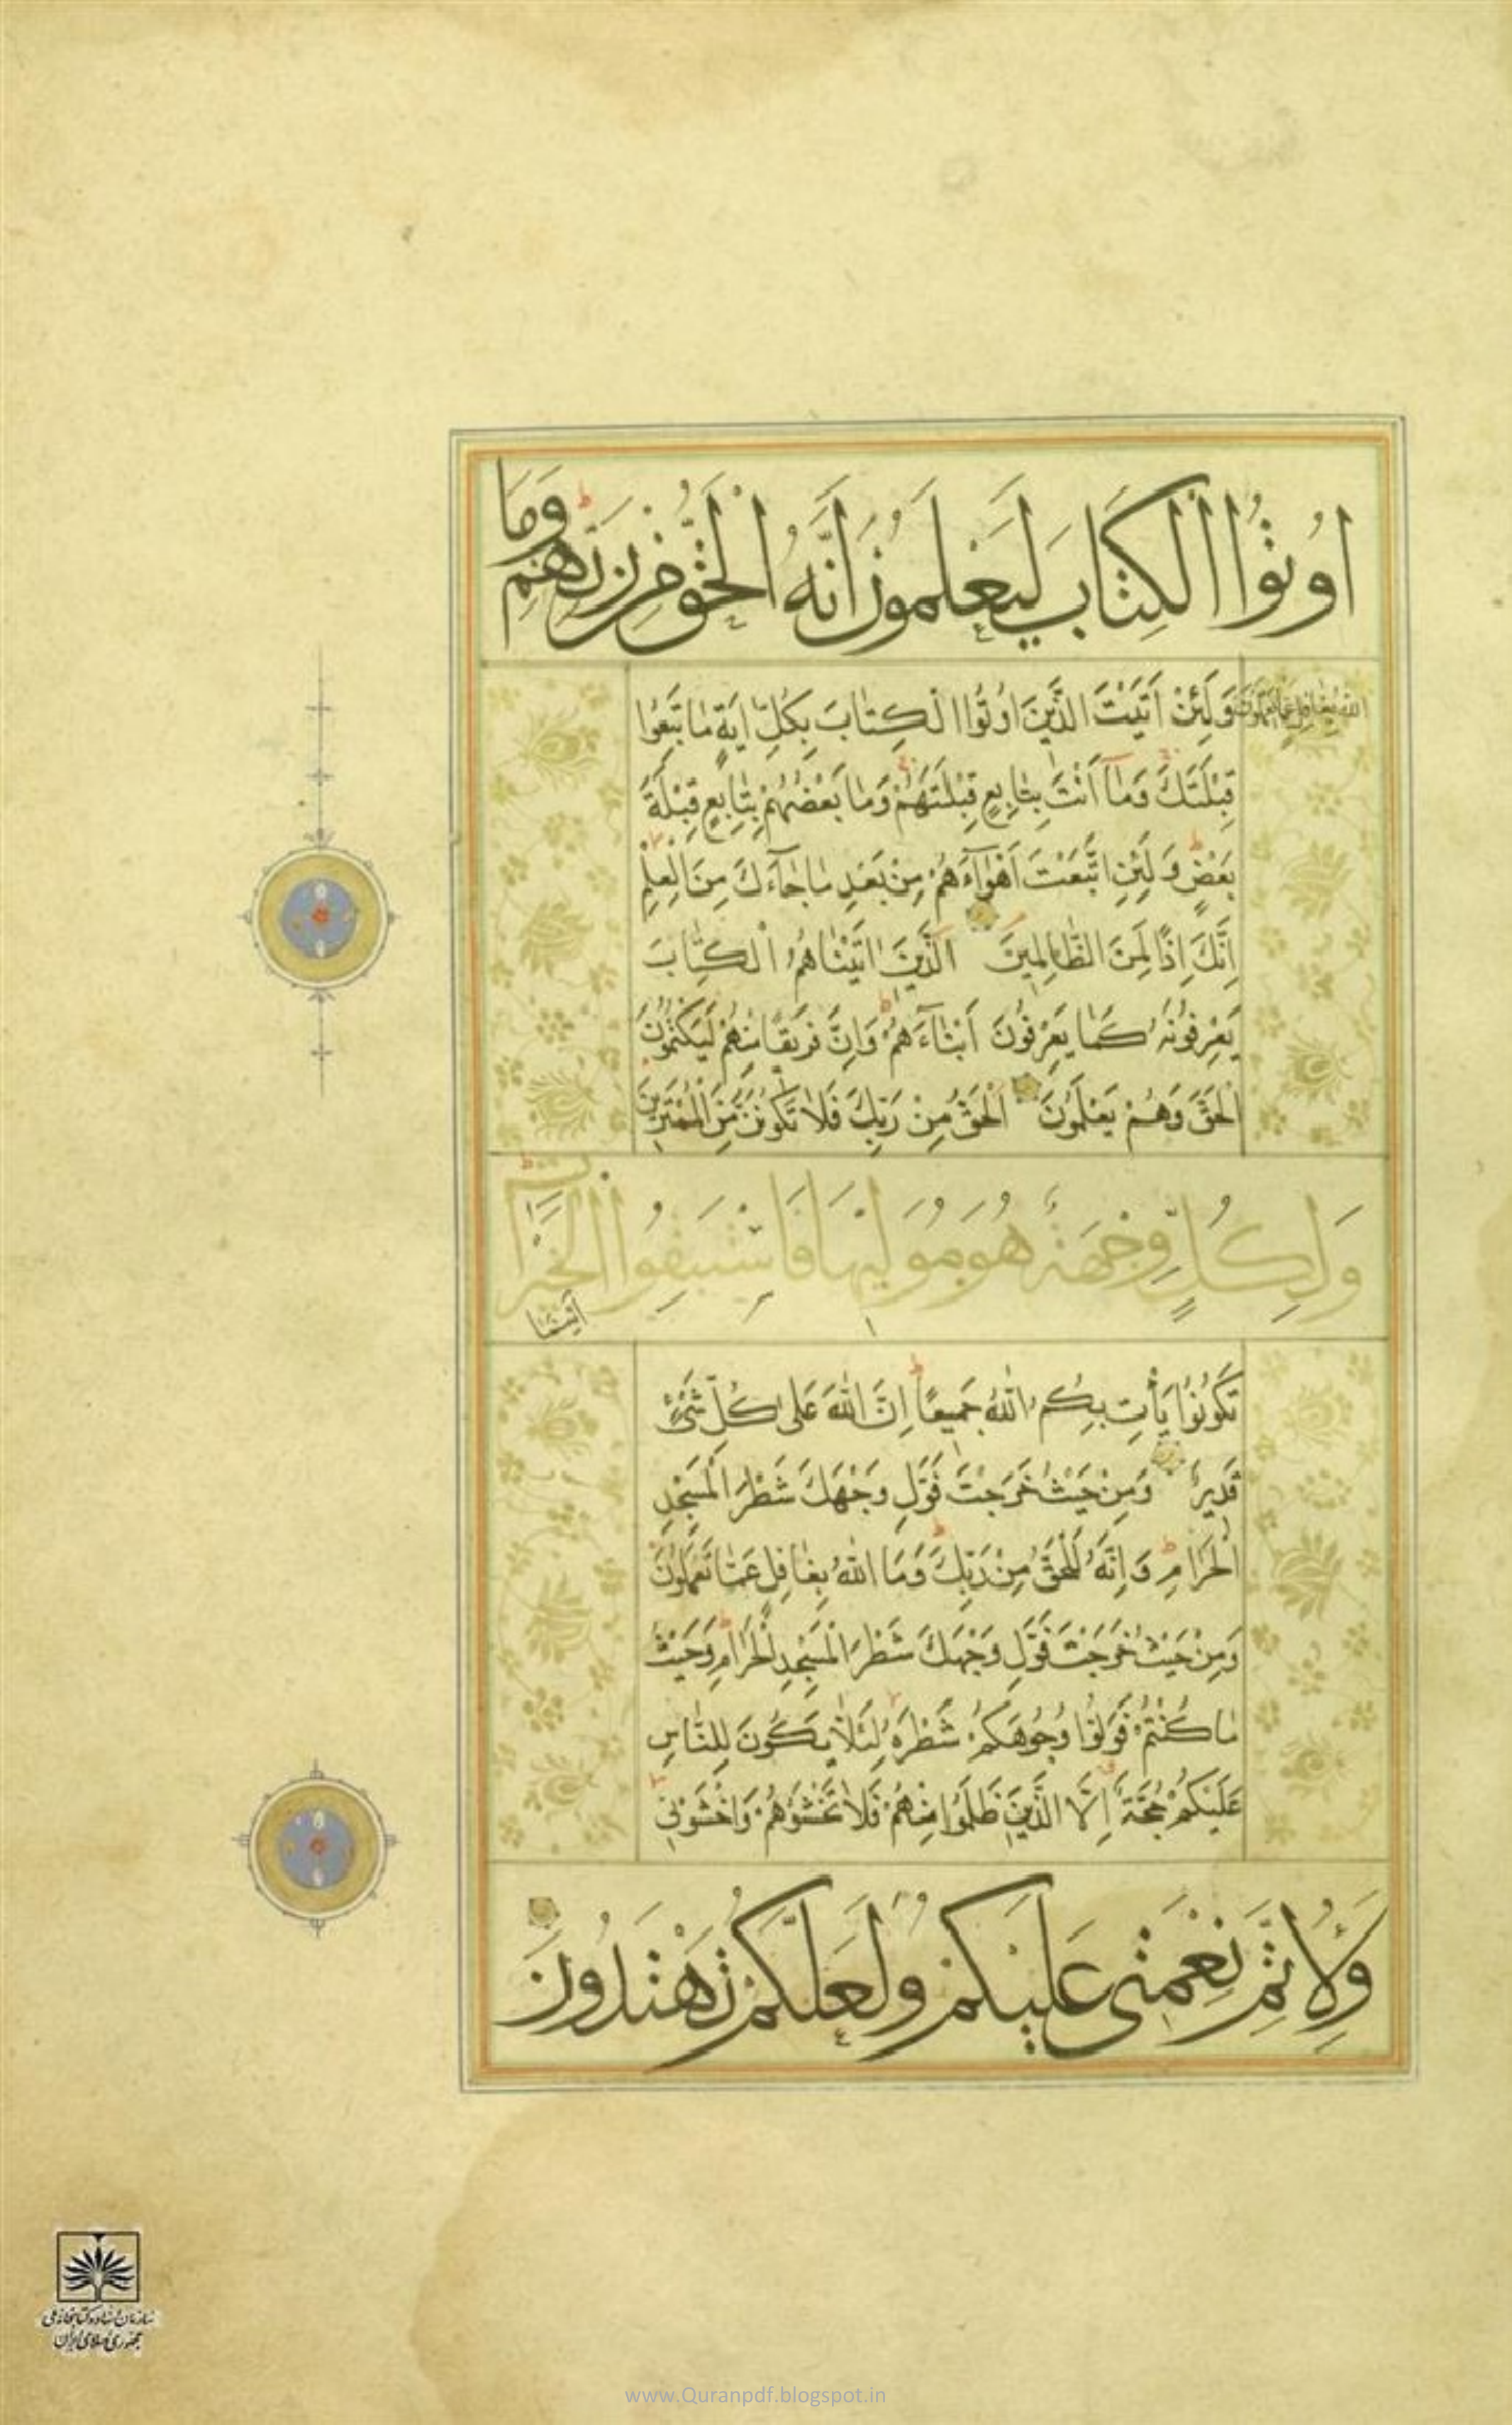 اُوتُوا الْكِتَابَ لَيَعْلَمُونَ اَنَّهُ الْحَقُّ مِنْ رَبِّهِمْ وَمَا
اللهُ بِغَافِلٍ عَمَّا يَعْمَلُونَ وَلَئِنْ اَتَيْتَ الَّذِينَ اُوتُوا الْكِتَابَ بِكُلِّ ايَةٍ مَا تَبِعُوا
قِبْلَتَكَ وَمَا اَنْتَ بِتَابِعٍ قِبْلَتَهُمْ وَمَا بَعْضُهُمْ بِتَابِعٍ قِبْلَةَ
بَعْضٍ وَلَئِنِ اتَّبَعْتَ اَهْوَاءَهُمْ مِنْ بَعْدِ مَا جَاءَكَ مِنَ الْعِلْمِ
اِنَّكَ اِذًا لَمِنَ الظَّالِمِينَ الَّذِينَ اتَيْنَاهُمُ الْكِتَابَ
يَعْرِفُونَهُ كَمَا يَعْرِفُونَ اَبْنَاءَهُمْ وَاِنَّ فَرِيقًا مِنْهُمْ لَيَكْتُمُونَ
الْحَقَّ وَهُمْ يَعْلَمُونَ اَلْحَقُّ مِنْ رَبِّكَ فَلَا تَكُونَنَّ مِنَ الْمُمْتَرِينَ
وَلِكُلٍّ وِجْهَةٌ هُوَ مُوَلِّيهَا فَاسْتَبِقُوا الْخَيْرَاتِ اَيْنَمَا
تَكُونُوا يَأْتِ بِكُمُ اللهُ جَمِيعًا اِنَّ اللهَ عَلَى كُلِّ شَيْءٍ
قَدِيرٌ وَمِنْ حَيْثُ خَرَجْتَ فَوَلِّ وَجْهَكَ شَطْرَ الْمَسْجِدِ
الْحَرَامِ وَاِنَّهُ لَلْحَقُّ مِنْ رَبِّكَ وَمَا اللهُ بِغَافِلٍ عَمَّا تَعْمَلُونَ
وَمِنْ حَيْثُ خَرَجْتَ فَوَلِّ وَجْهَكَ شَطْرَ الْمَسْجِدِ الْحَرَامِ وَحَيْثُ
مَا كُنْتُمْ فَوَلُّوا وُجُوهَكُمْ شَطْرَهُ لِئَلَّا يَكُونَ لِلنَّاسِ
عَلَيْكُمْ حُجَّةٌ اِلَّا الَّذِينَ ظَلَمُوا مِنْهُمْ فَلَا تَخْشَوْهُمْ وَاخْشَوْنِي
وَلِاُتِمَّ نِعْمَتِي عَلَيْكُمْ وَلَعَلَّكُمْ تَهْتَدُونَ
سازمان اسناد و کتابخانه ملی
جمهوری اسلامی ایران
www.Quranpdf.blogspot.in